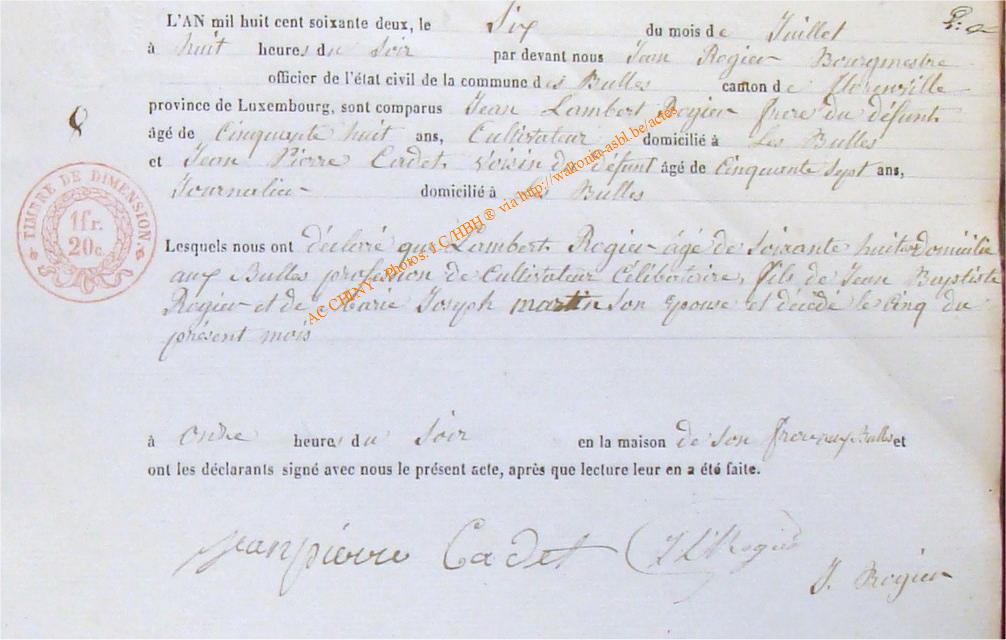 L'AN mil huit cent soixante deux, le Six du mois de Juillet
à huit heures du Soir par devant nous Jean Rogier Bourgmestre
officier de l'état civil de la commune des Bulles canton de florenville
province de Luxembourg, sont comparus Jean Lambert Rogier frere du défunt
âgé de Cinquante huit ans, Cultivateur domicilié à Les Bulles
et Jean Pierre Cadet voisin du défunt âgé de Cinquante Sept ans,
Journalier domicilié à Les Bulles
8
TIMBRE DE DIMENSION.
1fr.
20c.
Lesquels nous ont déclaré que Lambert Rogier âgé de Soixante huit domicilié
aux Bulles profession de Cultivateur Célibataire, fils de Jean Baptiste
Rogier et de Marie Joseph martin Son épouse et décédé le Cinq du
présent mois
à Onze heures du Soir en la maison de Son frere aux Bulles et
ont les déclarants signé avec nous le présent acte, après que lecture leur en a été faite.
jean pierre Cadet J L Rogier
J. Rogier
AC CHINY - Photos: J.C/HBH ® via http://wallonia-asbl.be/actes